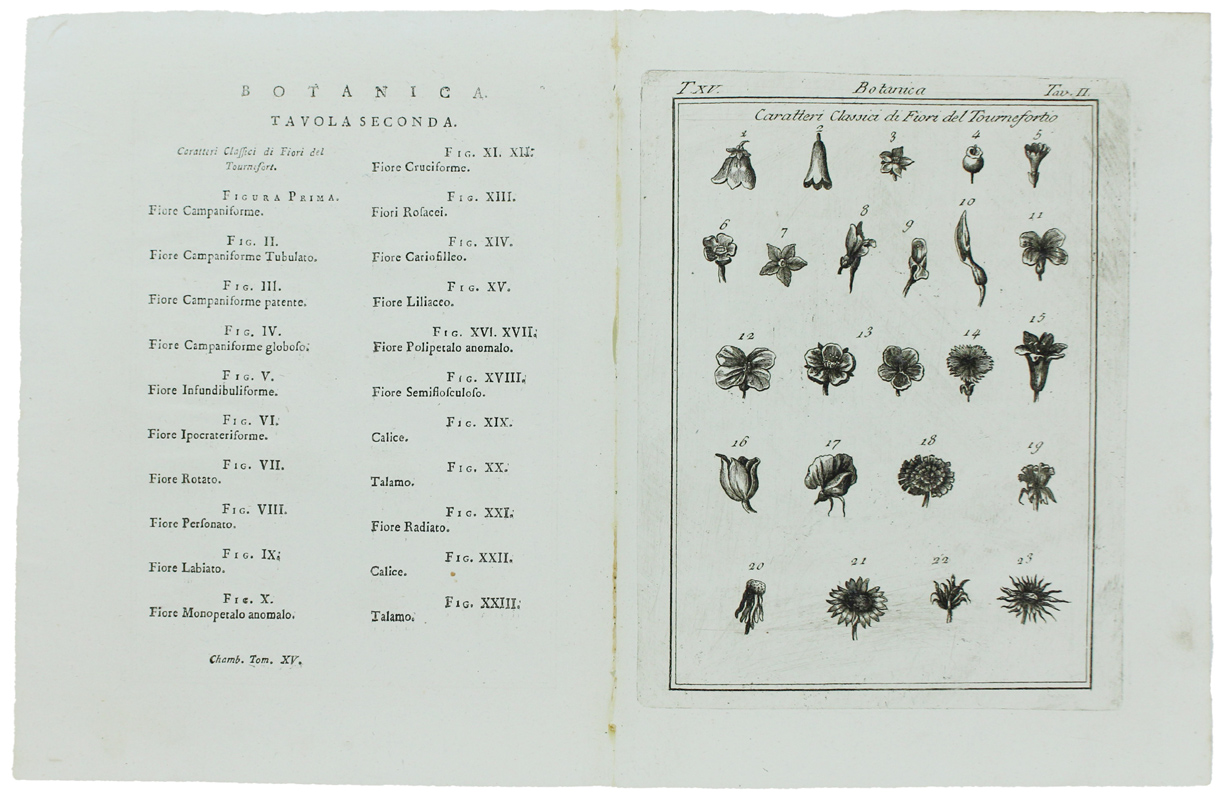 BOTANICA.
TAVOLA SECONDA.
Caratteri Claſſici di Fiori del
Tournefort.
FIGURA PRIMA.
Fiore Campaniforme.
FIG. II.
Fiore Campaniforme Tubulato.
FIG. III.
Fiore Campaniforme patente.
FIG. IV.
Fiore Campaniforme globoſo.
FIG. V.
Fiore Infundibuliforme.
FIG. VI.
Fiore Ipocrateriforme.
FIG. VII.
Fiore Rotato.
FIG. VIII.
Fiore Perſonato.
FIG. IX.
Fiore Labiato.
FIG. X.
Fiore Monopetalo anomalo.
Chamb. Tom. XV.
FIG. XI. XII.
Fiore Cruciforme.
FIG. XIII.
Fiori Roſacei.
FIG. XIV.
Fiore Cariofilleo.
FIG. XV.
Fiore Liliaceo.
FIG. XVI. XVII.
Fiore Polipetalo anomalo.
FIG. XVIII.
Fiore Semifloſculoſo.
FIG. XIX.
Calice.
FIG. XX.
Talamo.
FIG. XXI.
Fiore Radiato.
FIG. XXII.
Calice.
FIG. XXIII.
Talamo.
T.XV. Botanica Tav. II.
Caratteri Classici di Fiori del Tournefortio
1 2 3 4 5
6 7 8 9 10 11
12 13 14 15
16 17 18 19
20 21 22 23